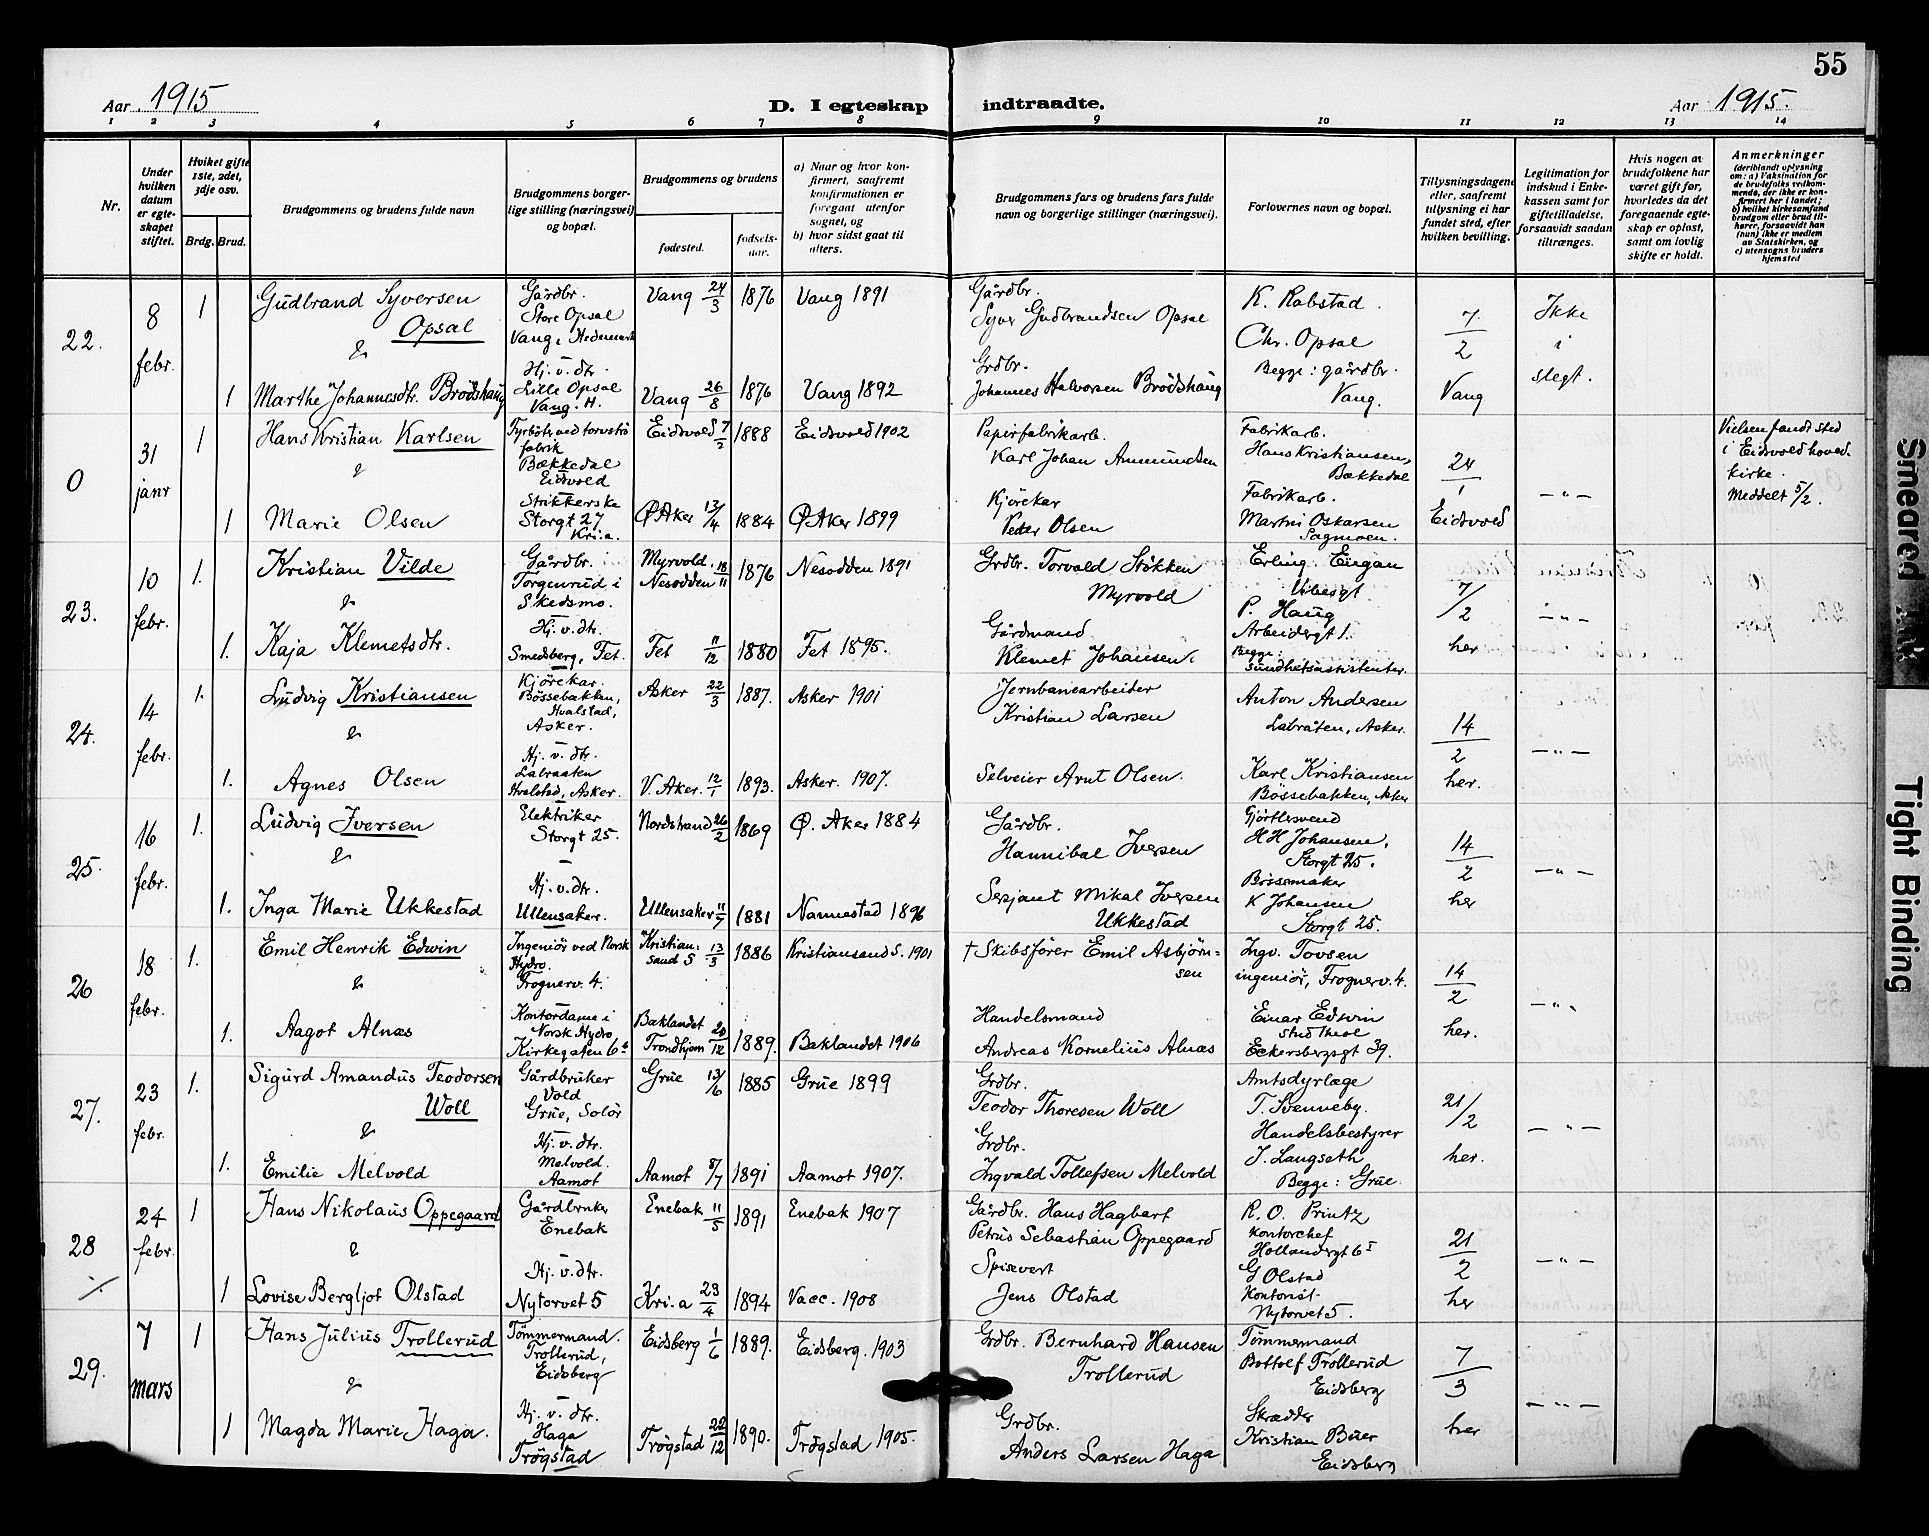 55
Aar 1915
D. I egteskap indtraadte.
Aar 1915.
1 2 3 4 5 6 7 8 9 10 11 12 13 14
Nr.
Under hvilken datum er egteskapet stiftet.
Hvilket gifte 1ste, 2det, 3dje osv.
Brdg. Brud.
Brudgommens og brudens fulde navn
Brudgommens borgerlige stilling (næringsvei) og bopæl.
Brudgommens og brudens
fødested.
fødselsaar.
a) Naar og hvor konfirmert, saafremt konfirmationen er foregaat utenfor sognet, og
b) hvor sidst gaat til alters.
Brudgommens fars og brudens fars fulde navn og borgerlige stillinger (næringsvei).
Forlovernes navn og bopæl.
Tillysningsdagene eller, saafremt tillysning ei har fundet sted, efter hvilken bevilling.
Legitimation for indskud i Enkekassen samt for giftetilladelse, forsaavidt saadan tiltrænges.
Hvis nogen av brudefolkene har været gift før, hvorledes da det foregaaende egteskap er opløst, samt om lovlig skifte er holdt.
Anmerkninger (deriblandt oplysning om: a) Vaksination for de brudefolks vedkommende, der ikke er konfirmert her i landet; b) hvilket kirkesamfund brudgom eller brud tilhører, forsaavidt han (hun) ikke er medlem av Statskirken, og c) utensogns bruders hjemsted
22. 8 febr. 1 Gudbrand Syversen Opsal
Gårdbr. Store Opsal Vang, Hedemark
Vang 24/3 1876 Vang 1891
Gårdbr. Syver Gudbrandsen Opsal
K. Rabstad. Chr. Opsal Begge: gårdbr. Vang.
7/2 Vang
Ikke i slegt.
&
1 Marthe Johannesdtr. Brødshaug
Hj. v. dtr. Lille Opsal Vang. H.
Vang 26/8 1876 Vang 1892
Grdbr. Johannes Halvorsen Brødshaug
0 31 janr 1 Hans Kristian Karlsen
Fyrbøter ved torvstrøfabrik Bækkedal Eidsvold
Eidsvold 7/2 1888 Eidsvold 1902
Papirfabrikarb. Karl Johan Ammundsen
Fabrikarb. Hans Kristiansen, Bækkedal
Fabrikarb. Martin Oskarsen Sagmoen.
24/1 Eidsvold
— " —
Vielsen fandt sted i Eidsvold hovedkirke. Meddelt 5/2.
&
1 Marie Olsen
Strikkerske Storgt 27. Kri.a.
Ø. Aker 13/4 1884 Ø. Aker 1899
Kjørekar Peder Olsen
23. 10 febr. 1. Kristian Vilde
Gårdbr. Torgenrud i Skedsmo.
Myrvold. Nesodden 18/11 1876 Nesodden 1891
Grdbr. Torvald Støkken Myrvold
Erling Engan Vibesgt
P. Haug Arbeidergt 1. Begge: sundhetsassistenter.
7/2 her
— " —
&
1. Kaja Klemetsdtr.
Hj. v. dtr. Smedsberg, Fet.
Fet 11/12 1880 Fet 1895.
Gårdmand Klemet Johansen.
24. 14 febr. 1. Ludvig Kristiansen
Kjørekar. Bøssebakken, Hvalstad, Asker.
Asker 22/3 1887. Asker 1901
Jernbanearbeider Kristian Larsen
Anton Andersen Labråten, Asker.
Karl Kristiansen Bøssebakken, Asker
14/2 her.
— " —
&
1. Agnes Olsen
Hj. v. dtr. Labraaten Hvalstad, Asker.
V. Aker. 12/1 1893. Asker. 1907.
Selveier Arnt Olsen.
25. 16 febr. 1. Ludvig Iversen
Elektriker Storgt 25.
Nordstrand 26/2 1869 Ø. Aker 1884
Gårdbr. Hannibal Iversen
Gjørtlersvend H H Johansen, Storgt 25.
Bøssemaker K Johansen Storgt 25.
14/2 her
— " —
&
1. Inga Marie Ukkestad
Hj. v. dtr. Ullensaker.
Ullensaker 11/7 1881 Nannestad 1896
Sersjant Mikal Iversen Ukkestad
26 18 febr. 1. Emil Henrik Edwin
Ingeniør ved Norsk Hydro. Frognerv. 4.
Kristiansand S 13/3 1886 Kristiansand S. 1901
† Skibsfører Emil Asbjørnsen
Ingv. Tovsen ingeniør, Frognerv. 4.
Einar Edwin stud. theol Eckersbergsgt 39.
14/2 her.
— " —
&
1. Aagot Alnæs
Kontordame i Norsk Hydro Kirkegaten 6
Baklandet Trondhjem 20/12 1889. Baklandet 1906
Handelsmand Andreas Kornelius Alnæs
27. 23 febr. 1. Sigurd Amandus Teodorsen Woll
Gårdbruker Vold Grue, Solør
Grue 13/6 1885 Grue 1899
Grdbr. Teodor Thoresen Woll
Amtsdyrlæge T. Svenneby.
Handelsbestyrer J. Langseth Begge: Grue.
21/2 her.
— " —
&
1. Emilie Melvold
Hj. v. dtr. Melvold. Aamot
Aamot 8/7 1891 Aamot 1907.
Grdbr. Ingvald Tollefsen Melvold
28 ./. 24 febr. 1 Hans Nikolaus Oppegaard
Gårdbruker Enebak
Enebak 11/5 1891 Enebak 1907
Gårdbr. Hans Hagbart Petrus Sebastian Oppegaard
R. O. Printz kontorchef Hollandergt 6 I
G Olstad Kontorist Nytorvet 5.
21/2 her
— " —
&
1 Lovise Bergljot Olstad
Hj. v. dtr. Nytorvet 5
Kri.a 23/4 1894 Vacc. 1908
Spisevert Jens Olstad
29. 7 mars 1 Hans Julius Trollerud
Tømmermand. Trollerud, Eidsberg
Eidsberg 1/6 1889. Eidsberg. 1903
Grdbr. Bernhard Hansen Trollerud
Tømmermand Bottolf Trollerud Eidsberg
Skrædder Kristian Buer Eidsberg
7/3 her
— " —
&
1 Magda Marie Haga.
Hj. v. dtr. Haga Trøgstad
Trøgstad 22/12 1890. Trøgstad 1905.
Grdbr. Anders Larsen Haga
Smeared Ink
Tight Binding